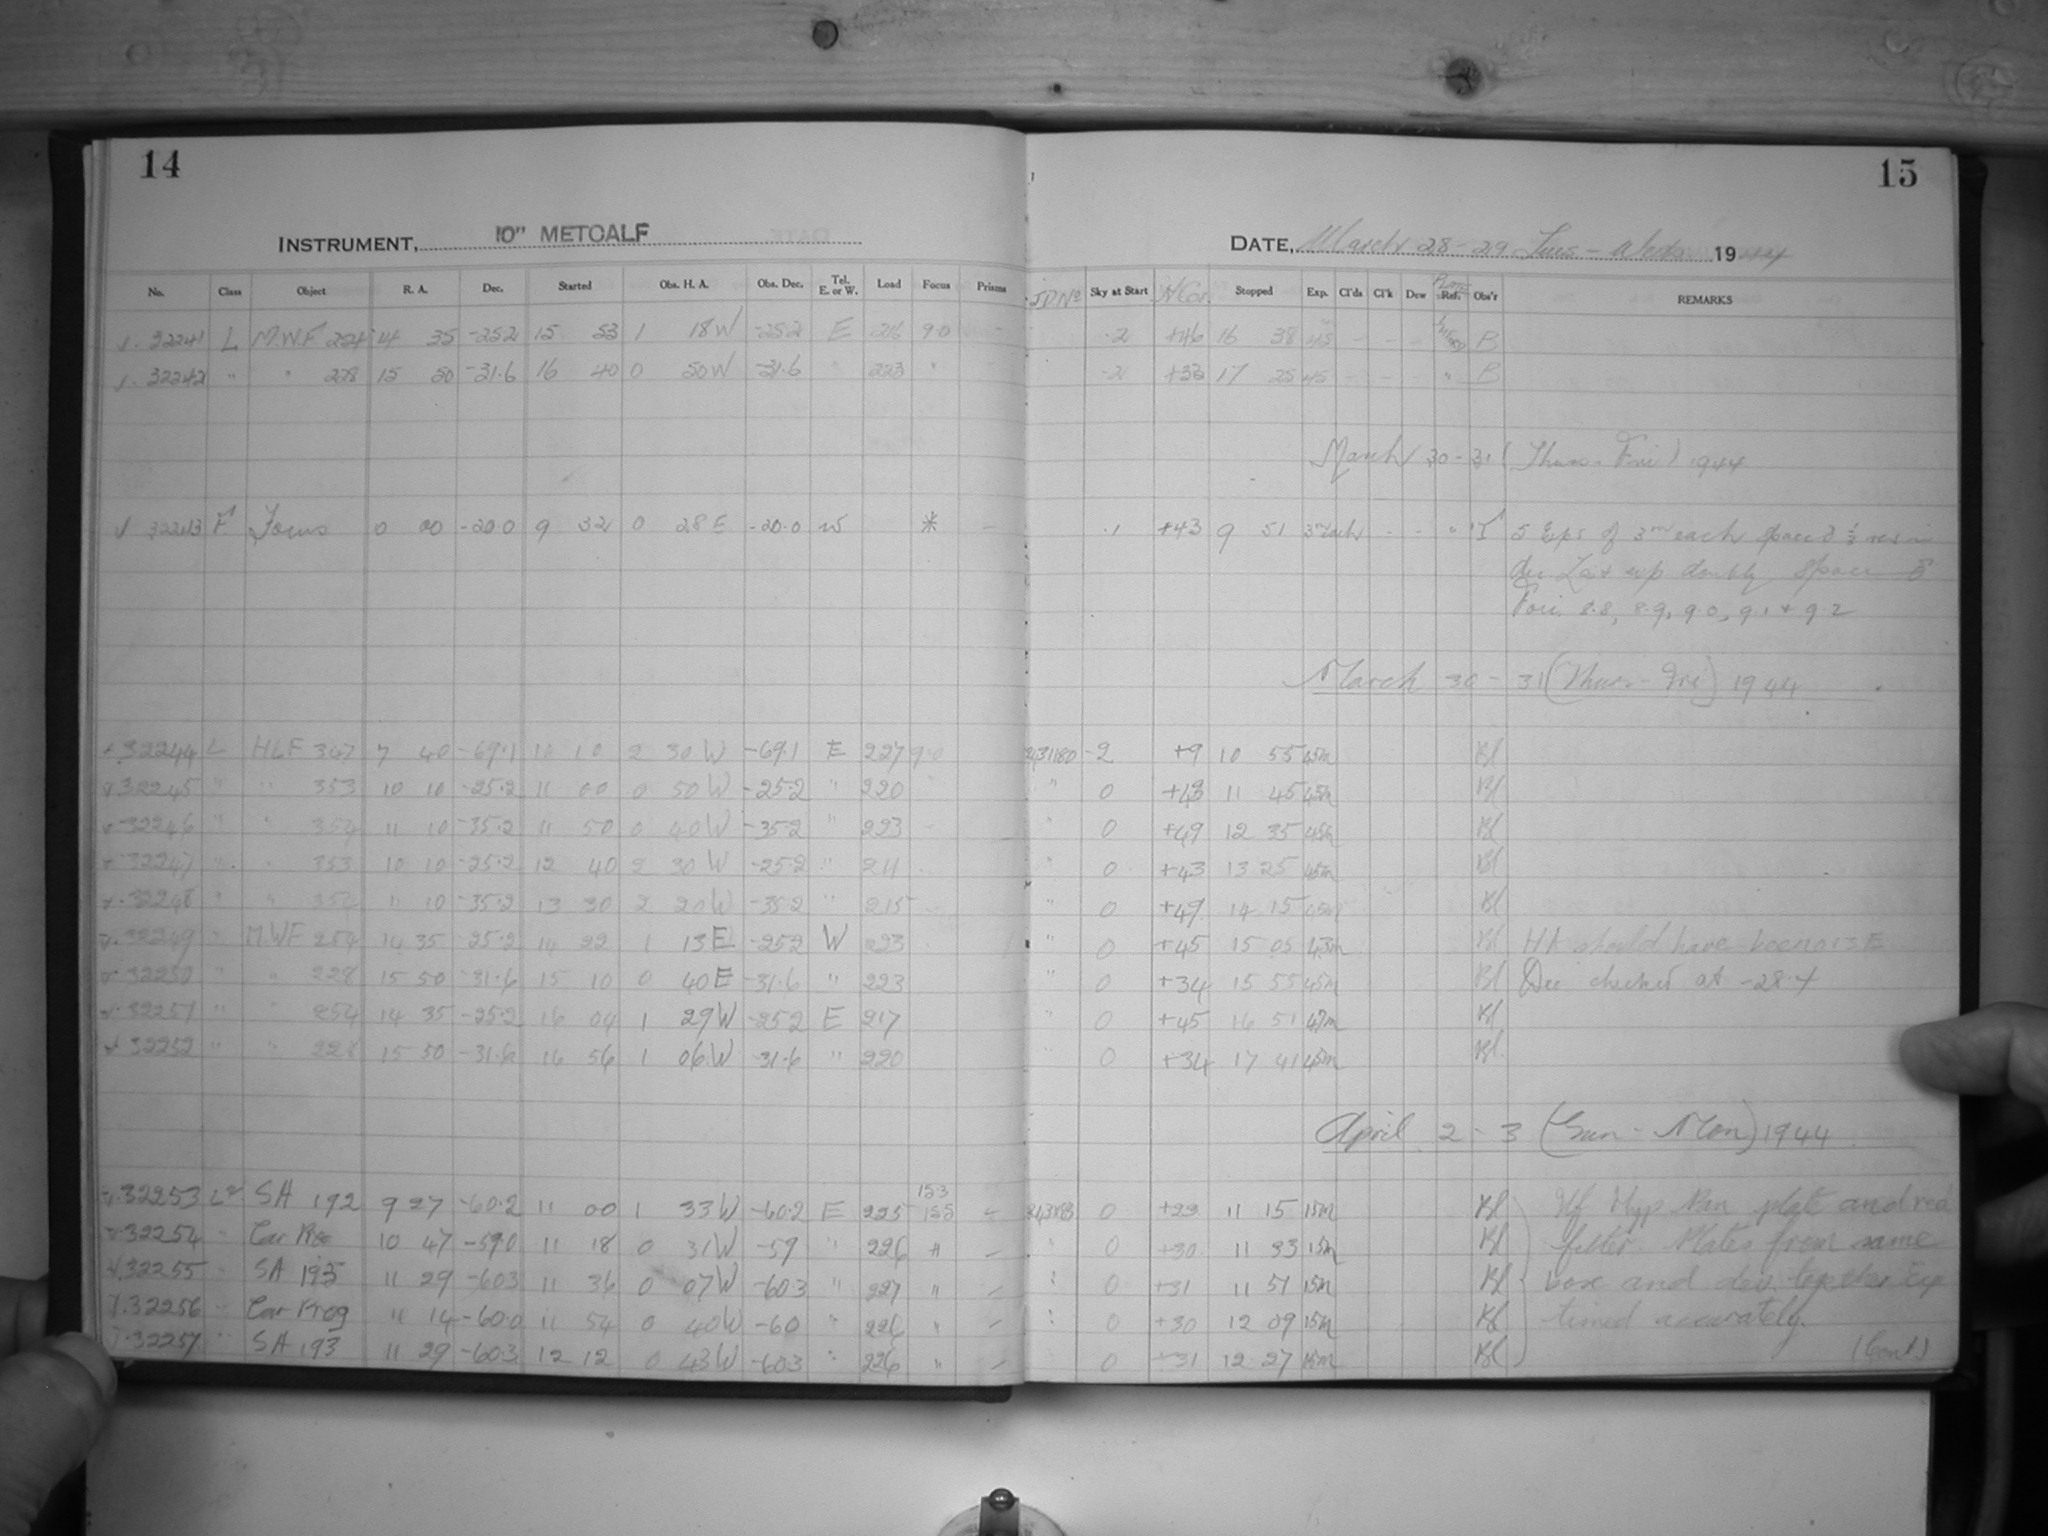 14
15
INSTRUMENT, 10" METCALF
DATE, March 28-29 Tues - Weds 1944
No. Class Object R. A. Dec. Started Obs. H. A. Obs. Dec. Tel. E. or W. Load Focus Prisms JD No Sky at Start H Cor. Stopped Exp. Cl'ds Cl'k Dew Ref. Obs'r REMARKS
32241 L M.W.F 254 14 35 -25.2 15 53 1 18 W -25.2 E 216 9.0 -2 +46 16 38 45 - - - B
32242 " " 228 15 50 -31.6 16 40 0 50 W -31.6 " 223 " -2 +33 17 25 45 - - - " B
March 30-31 (Thurs-Fri) 1944
32243 F Focus 0 00 -20.0 9 32 0 28 E -20.0 W * - +43 9 51 3m each - - " 5 Exps of 3m each spaced
Last exp doubly space
Foci 8.8, 8.9, 9.0, 9.1 + 9.2
March 30-31 (Thurs-Fri) 1944
32244 L HLF 347 7 40 -69.1 10 10 2 30 W -69.1 E 227 9.0 2431180 -2 +9 10 55 45m Bl
32245 " " 353 10 10 -25.2 11 00 0 50 W -25.2 " 220 " 0 +43 11 45 45m Bl
32246 " " 354 11 10 -35.2 11 50 0 40 W -35.2 " 223 " 0 +49 12 35 45m Bl
32247 " " 353 10 10 -25.2 12 40 2 30 W -25.2 " 211 " 0 +43 13 25 45m Bl
32248 " " 354 11 10 -35.2 13 30 2 20 W -35.2 " 215 " 0 +49 14 15 45m Bl
32249 " M.WF 254 14 35 -25.2 14 22 1 13 E -25.2 W 223 " 0 +45 15 05 43m Bl HA should have been 0 13 E
32250 " " 228 15 50 -31.6 15 10 0 40 E -31.6 " 223 " 0 +34 15 55 45m Bl Dec checked at -28.4
32251 " " 254 14 35 -25.2 16 04 1 29 W -25.2 E 217 " 0 +45 16 51 47m Bl
32252 " " 228 15 50 -31.6 16 56 1 06 W -31.6 " 220 " 0 +34 17 41 45m Bl
April 2-3 (Sun-Mon) 1944
153
32253 SA 192 9 27 -60.2 11 00 1 33 W -60.2 E 225 155 - 0 11 15 15m Bl Ilf Hyp Pan plate and red
32254 " 10 47 -59.0 11 18 0 31 W -59 " 226 " - " 0 +30 11 33 15m Bl filter. Plates from same
32255 " SA 193 11 29 -60.3 11 36 0 07 W -60.3 " 227 " - " 0 +31 11 51 15m Bl box and dev. together Exp
32256 " Car Prog 11 14 -60.0 11 54 0 40 W -60 " 226 " - " 0 +30 12 09 15m Bl timed accurately.
32257 " SA 193 11 29 -60.3 12 12 0 43 W -60.3 " 226 " - 0 +31 12 27 15m Bl (Cont)